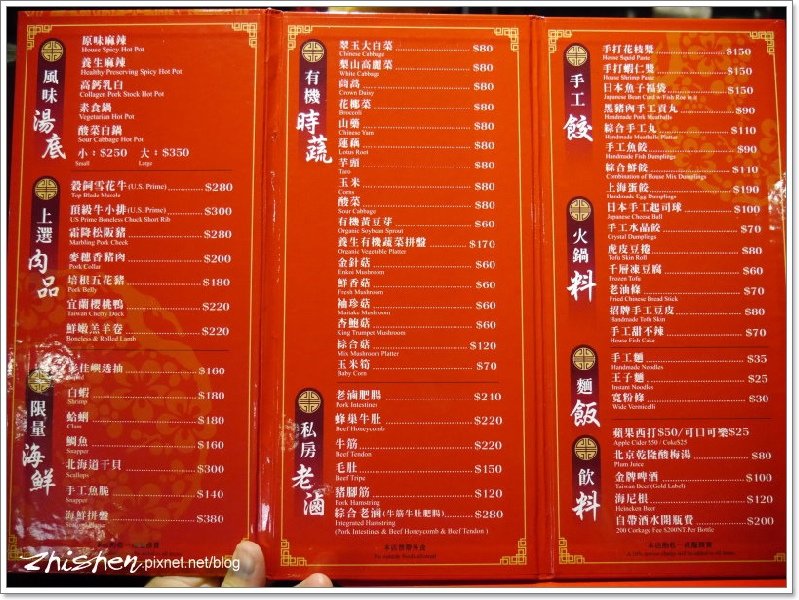 風味湯底
原味麻辣
House Spicy Hot Pot
養生麻辣
Healthy Preserving Spicy Hot Pot
高鈣乳白
Collager Pork Stock Hot Pot
素食鍋
Vegetarian Hot Pot
酸菜白鍋
Sour Cabbage Hot Pot
小：$250 大：$350
Small Large
上選肉品
穀飼雪花牛(U.S. Prime) $280
Top Blade Muscle
頂級牛小排(U.S. Prime) $300
US Prime Boneless Chuck Short Rib
霜降松阪豬 $280
Marbling Pork Cheek
麥穗香豬肉 $200
Pork Collar
培根五花豬 $180
Pork Belly
宜蘭櫻桃鴨 $220
Taiwan Cherry Duck
鮮嫩羔羊卷 $220
Boneless & Rolled Lamb
限量海鮮
佳嶼透抽 $160
白蝦 $180
Shrimp
蛤蜊 $180
Clam
鯛魚 $160
Snapper
北海道干貝 $300
Scallops
手工魚脆 $140
Snapper
海鮮拼盤 $380
有機時蔬
翠玉大白菜 $80
Chinese Cabbage
梨山高麗菜 $80
White Cabbage
茼蒿 $80
Crown Daisy
花椰菜 $80
Broccoli
山藥 $80
Chinese Yam
蓮藕 $80
Lotus Root
芋頭 $80
Taro
玉米 $80
Corns
酸菜 $80
Sour Cabbage
有機黃豆芽 $60
Organic Soybean Sprout
養生有機蔬菜拼盤 $170
Organic Vegetable Platter
金針菇 $60
Enkee Mushroom
鮮香菇 $60
Fresh Mushroom
袖珍菇 $60
Maitake Mushroom
杏鮑菇 $60
King Trumpet Mushroom
綜合菇 $120
Mix Mushroom Platter
玉米筍 $70
Baby Corn
私房老滷
老滷肥腸 $210
Pork Intestines
蜂巢牛肚 $220
Beef Honeycomb
牛筋 $220
Beef Tendon
毛肚 $150
Beef Tripe
豬腳筋 $120
Pork Hamstring
綜合老滷(牛筋牛肚肥腸) $280
Integrated Hamstring
(Pork Intestins & Beef Honeycomb & Beef Tendon )
本店禁帶外食
No outside Food allowed
手工餃
手打花枝漿 $150
House Squid Paste
手打蝦仁漿 $150
House Shrimp Paste
日本魚子福袋 $150
Japanese Bean Curd w/Fish Roe
黑豬肉手工貢丸 $90
Handmade Pork Meatballs
綜合手工丸 $110
Handmade Meatballs Platter
手工魚餃 $90
Handmade Fish Dumplings
綜合鮮餃 $110
Combination of House Mix Dumplings
上海蛋餃 $190
Handmade Egg Dumplings
日本手工起司球 $100
Japanese Cheese Ball
手工水晶餃 $70
Crystal Dumplings
火鍋料
虎皮豆捲 $80
Tofu Skin Roll
千層凍豆腐 $60
Frozen Tofu
老油條 $70
Fried Chinese Bread Stick
招牌手工豆皮 $80
Handmade Tofu Skin
手工甜不辣 $70
House Fish Cake
麵飯
手工麵 $35
Handmade Noodles
王子麵 $25
Instant Noodles
寬粉條 $30
Wide Vermicelli
飲料
蘋果西打$50/可口可樂$25
Apple Cider $50 / Coke$25
北京乾隆酸梅湯 $80
Plum Juice
金牌啤酒 $100
Taiwan Beer(Gold Label)
海尼根 $120
Heineken Beer
自帶酒水開瓶費 $200
200 Corkage Fee $200NT.Per Bottle
zhishen.pixnet.net/blog